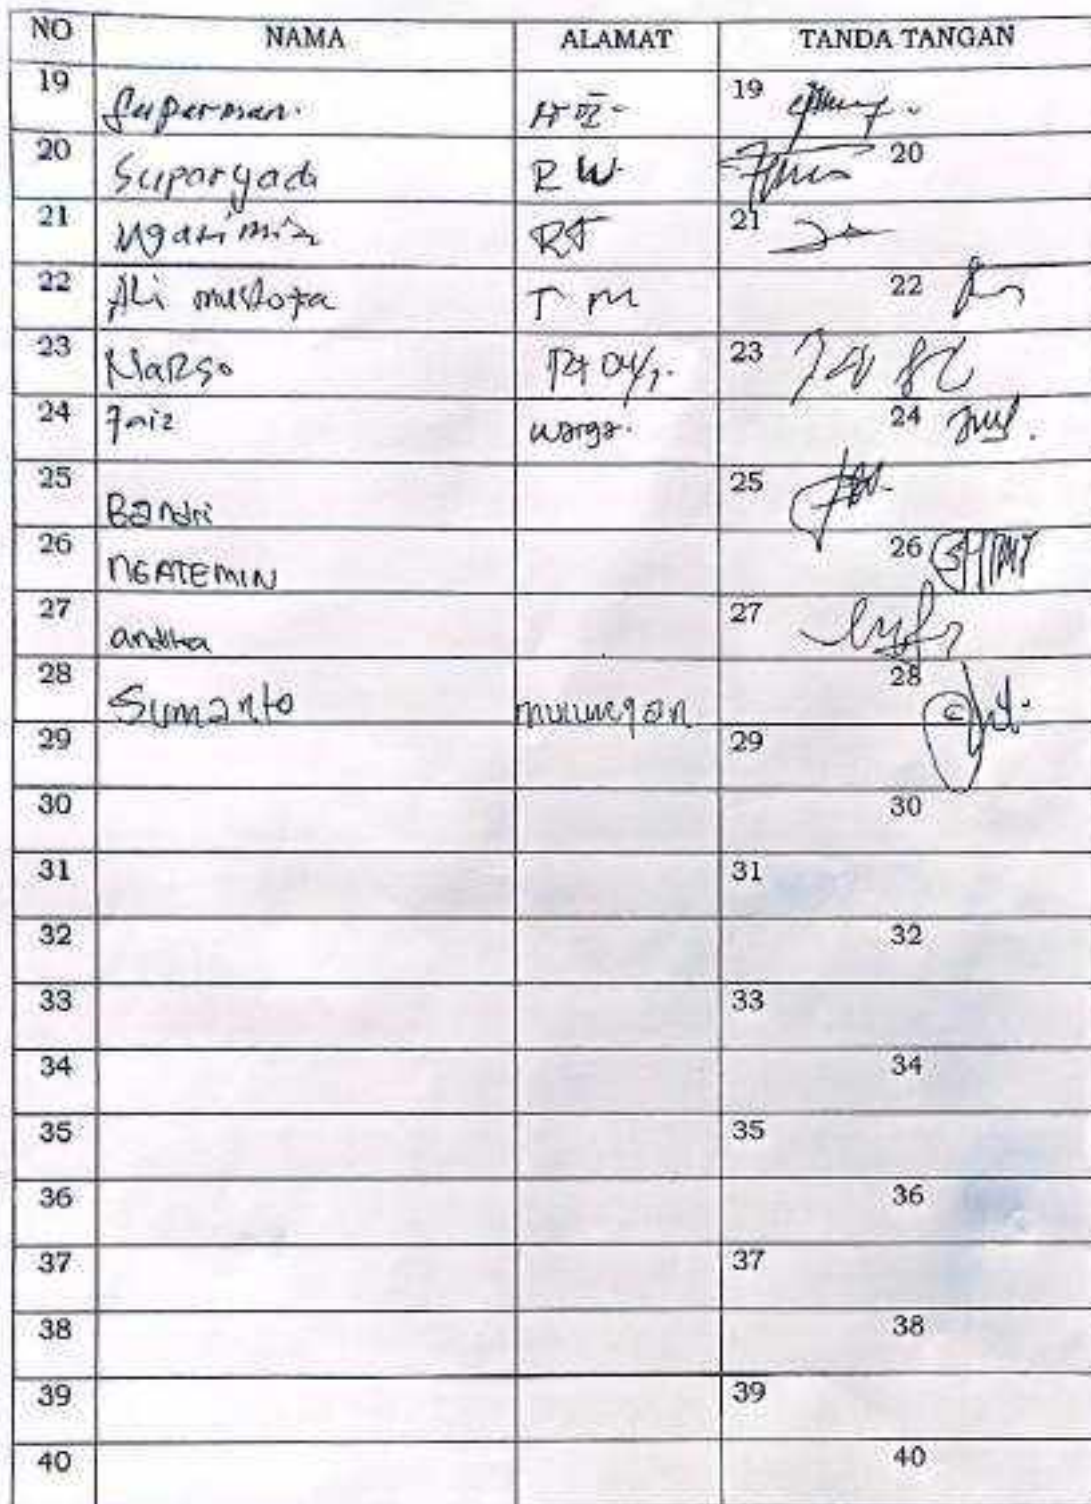 NO NAMA ALAMAT TANDA TANGAN
19 Superman. 19
20 Suparyadi RW. 20
21 Ngasimin RT 21
22 Ali mustofa T M 22
23 Narso Rt 04/1. 23
24 Faiz warga. 24
25 Bandri 25
26 NGATEMIN 26
27 andika 27
28 Sumanto 28
29 29
30 30
31 31
32 32
33 33
34 34
35 35
36 36
37 37
38 38
39 39
40 40